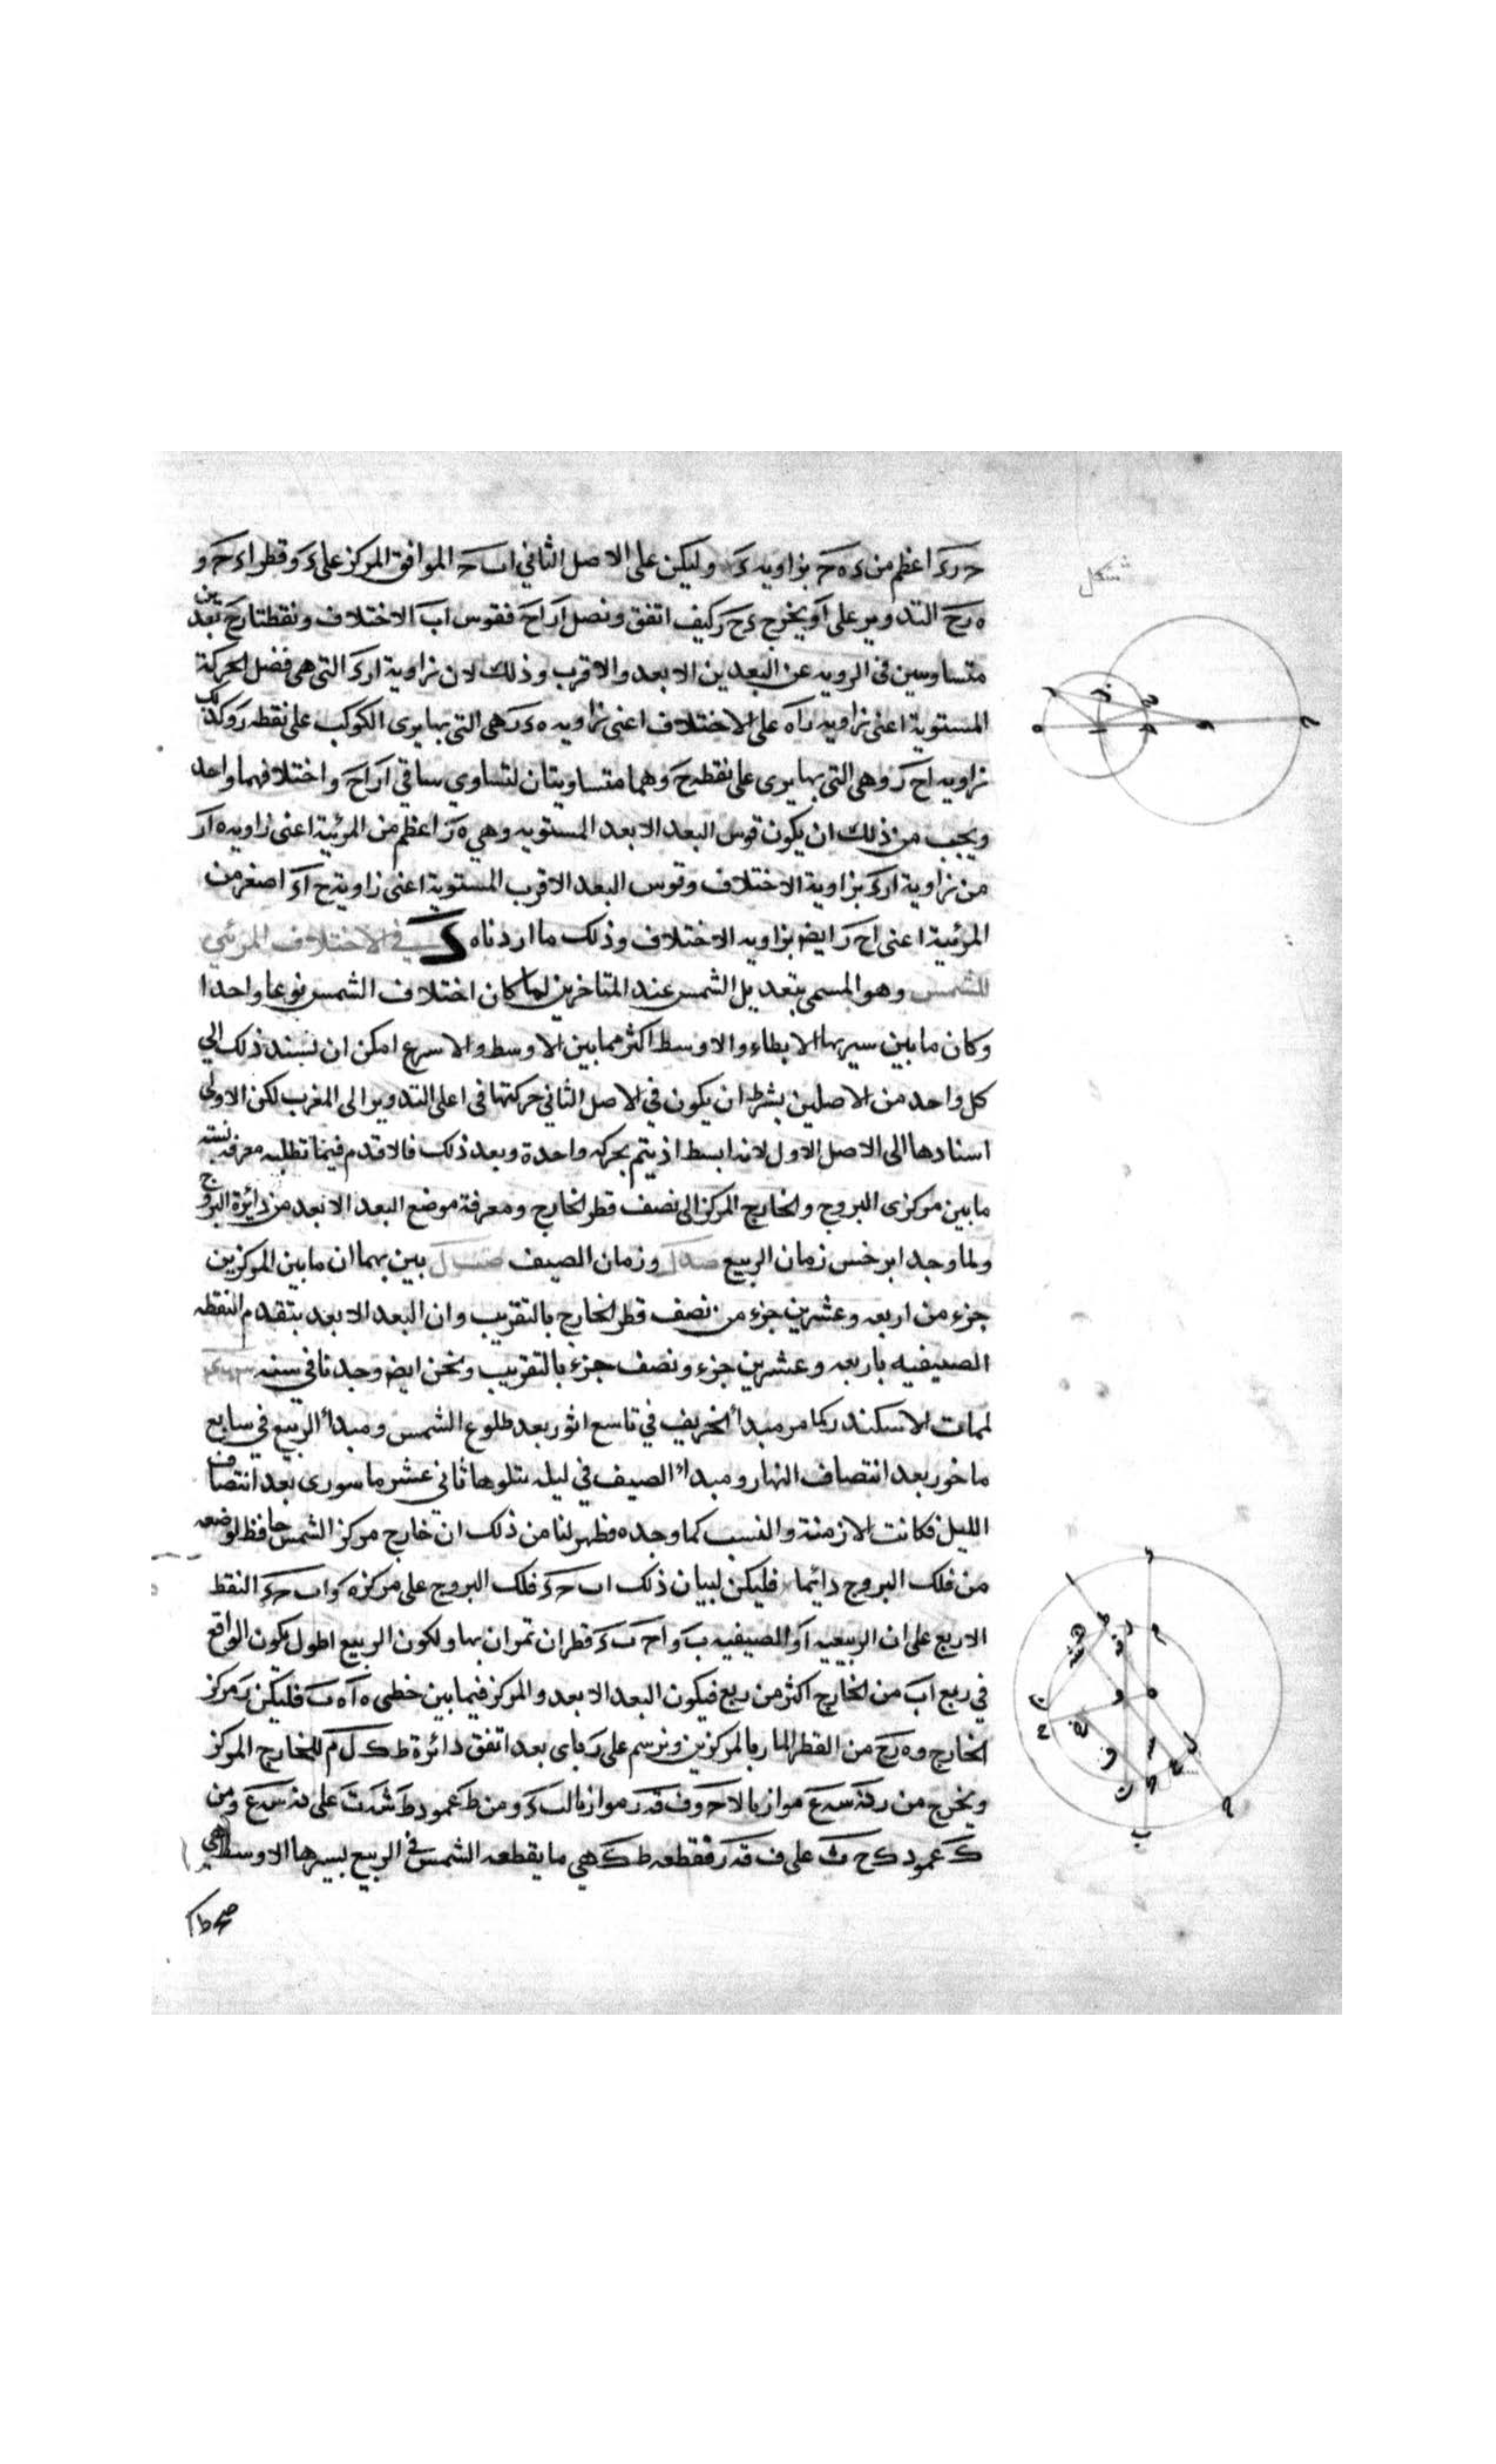 شكل
حرء اعظم من ء ه ح بزاويه ء وليكن على الاصل الثاني اب ح الموافق المركز على ء وقطر اء ح و
ه رح التدوير على ا ويخرج ء ح ر كيف اتفق ونصل ار اح فقوس اب الاختلاف ونقطتا رح بعدين
متساويين فى الرويه عن البعدين الابعد والاقرب وذلك لان زاوية ارء التى هى فضل الحركة
المستوية اعنى زاويه راه على الاختلاف اعنى زاويه ه ء ر هى التى بها يرى الكوكب على نقطه ر وكذلك
زاويه اح ر وهى التى بها يرى على نقطه ح وهما متساويتان لتساوي ساقي ار اح واختلافهما واحد
ويجب من ذلك ان يكون قوس البعد الابعد المستويه وهي ه ر اعظم من المرئية اعنى زاويه ه ار
من زاوية ارء بزاوية الاختلاف وقوس البعد الاقرب المستوية اعنى زاوية ح اء اصغر من
المرئية اعنى اح ر ايض بزاويه الاختلاف وذلك ما اردناه في الاختلاف المرئي
للشمس وهو المسمى بتعديل الشمس عند المتاخرين لما كان اختلاف الشمس نوعا واحدا
وكان ما بين سيريها الابطاء والاوسط اكثر مما بين الاوسط والاسرع امكن ان نسند ذلك الي
كل واحد من الاصلين بشرط ان يكون في الاصل الثاني حركتها فى اعلى التدوير الى المغرب لكن الاولى
اسنادها الى الاصل الاول لانه ابسط اذ يتم بحركه واحدة وبعد ذلك فالاقدم فيما تطلبه معرفة نسبة
ما بين مركزى البروج والخارج المركز الى نصف قطر الخارج ومعرفة موضع البعد الابعد من دائرة البروج
ولما وجد ابرخس زمان الربيع صدل وزمان الصيف صبل بين بهما ان ما بين المركزين
جزء من اربعه وعشرين جزء من نصف قطر الخارج بالتقريب وان البعد الابعد يتقدم النقطه
الصيفيه باربعه وعشرين جزء ونصف جزء بالتقريب ونحن ايض وجدنا في سنه
لممات الاسكندر كما مر مبدأ الخريف في تاسع اثور بعد طلوع الشمس ومبدأ الربيع في سابع
ماخور بعد انتصاف النهار ومبدا الصيف في ليله يتلوها ثاني عشر ماسورى بعد انتصاف
الليل فكانت الازمنة والنسب كما وجده فظهر لنا من ذلك ان خارج مركز الشمس حافظ لوضعه
من فلك البروج دائما فليكن لبيان ذلك اب حء فلك البروج على مركز ه واب حء النقط
الاربع على ان الربيعيه ا والصيفيه ب واح بء قطران تمران بها ولكون الربيع اطول يكون الواقع
في ربع اب من الخارج اكثر من ربع فيكون البعد الابعد والمركز فيما بين خطى ه ا ه ب فليكن ر مركز
الخارج وه رح من القطر المار بالمركزين ونرسم على ر باى بعد اتفق دائرة ط ك ل م للخارج المركز
ويخرج من ر ن س ع موازيا لاح وف ق ر موازيا لب ء ومن ط عمود ط ش ت على ن س ع ومن
ك عمود ك ح ث على ف ق ر فقطعه ط ك هي ما يقطعه الشمس في الربيع بسيرها الاوسط